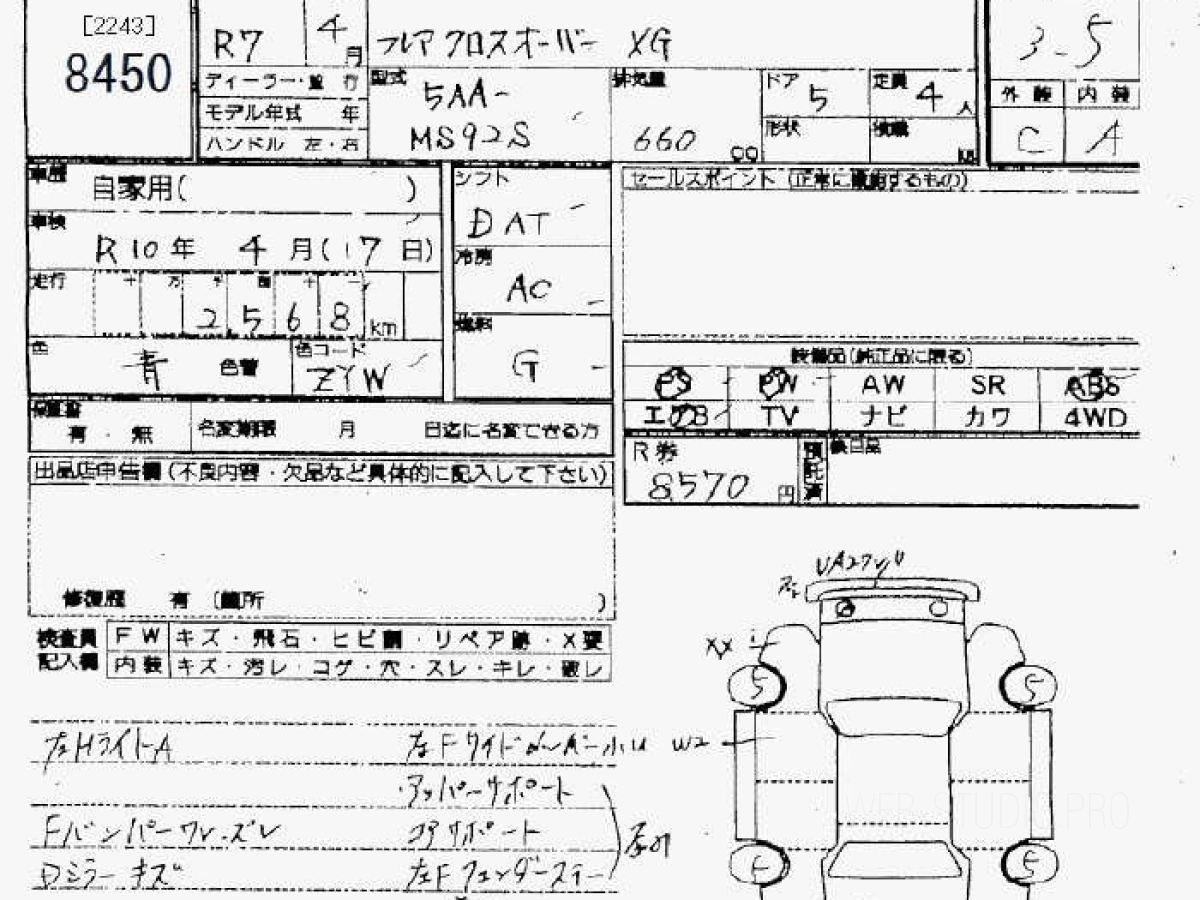 [2243]
8450
R7 4月
フレアクロスオーバー XG
3-5
ディーラー・並 行
モデル年式 年
ハンドル 左・右
型式 5AA-
MS92S
排気量
660 cc
ドア 5
定員 4 人
形状
積載 kg
外 装 内 装
C A
車歴 自家用( )
車検
R10年 4月(17日)
走行 十 万 千 百 十 一
2568 km
色 青 色替
色コード ZYW
シフト
DAT
冷房
AC
燃料
G
セールスポイント (正常に機能するもの)
装備品(純正品に限る)
PS PW AW SR ABS
エアB TV ナビ カワ 4WD
保証書
有 ・ 無
名変期限 月 日迄に名変できる方
R券
8570 円
預託済
後日品
出品店申告欄(不良内容・欠品など具体的に記入して下さい)
修復歴 有 (箇所 )
検査員
記入欄
FW キズ・飛石・ヒビ割・リペア跡・X要
内装 キズ・汚レ・コゲ・穴・スレ・キレ・破レ
左HライトA
左Fサイドメンバー小U
アッパーサポート
Fバンパーワレ・ズレ
コアサポート
Dミラーキズ
左Fフェンダーステー
XX
W2
5
5
5
WEB-STUDIO.PRO